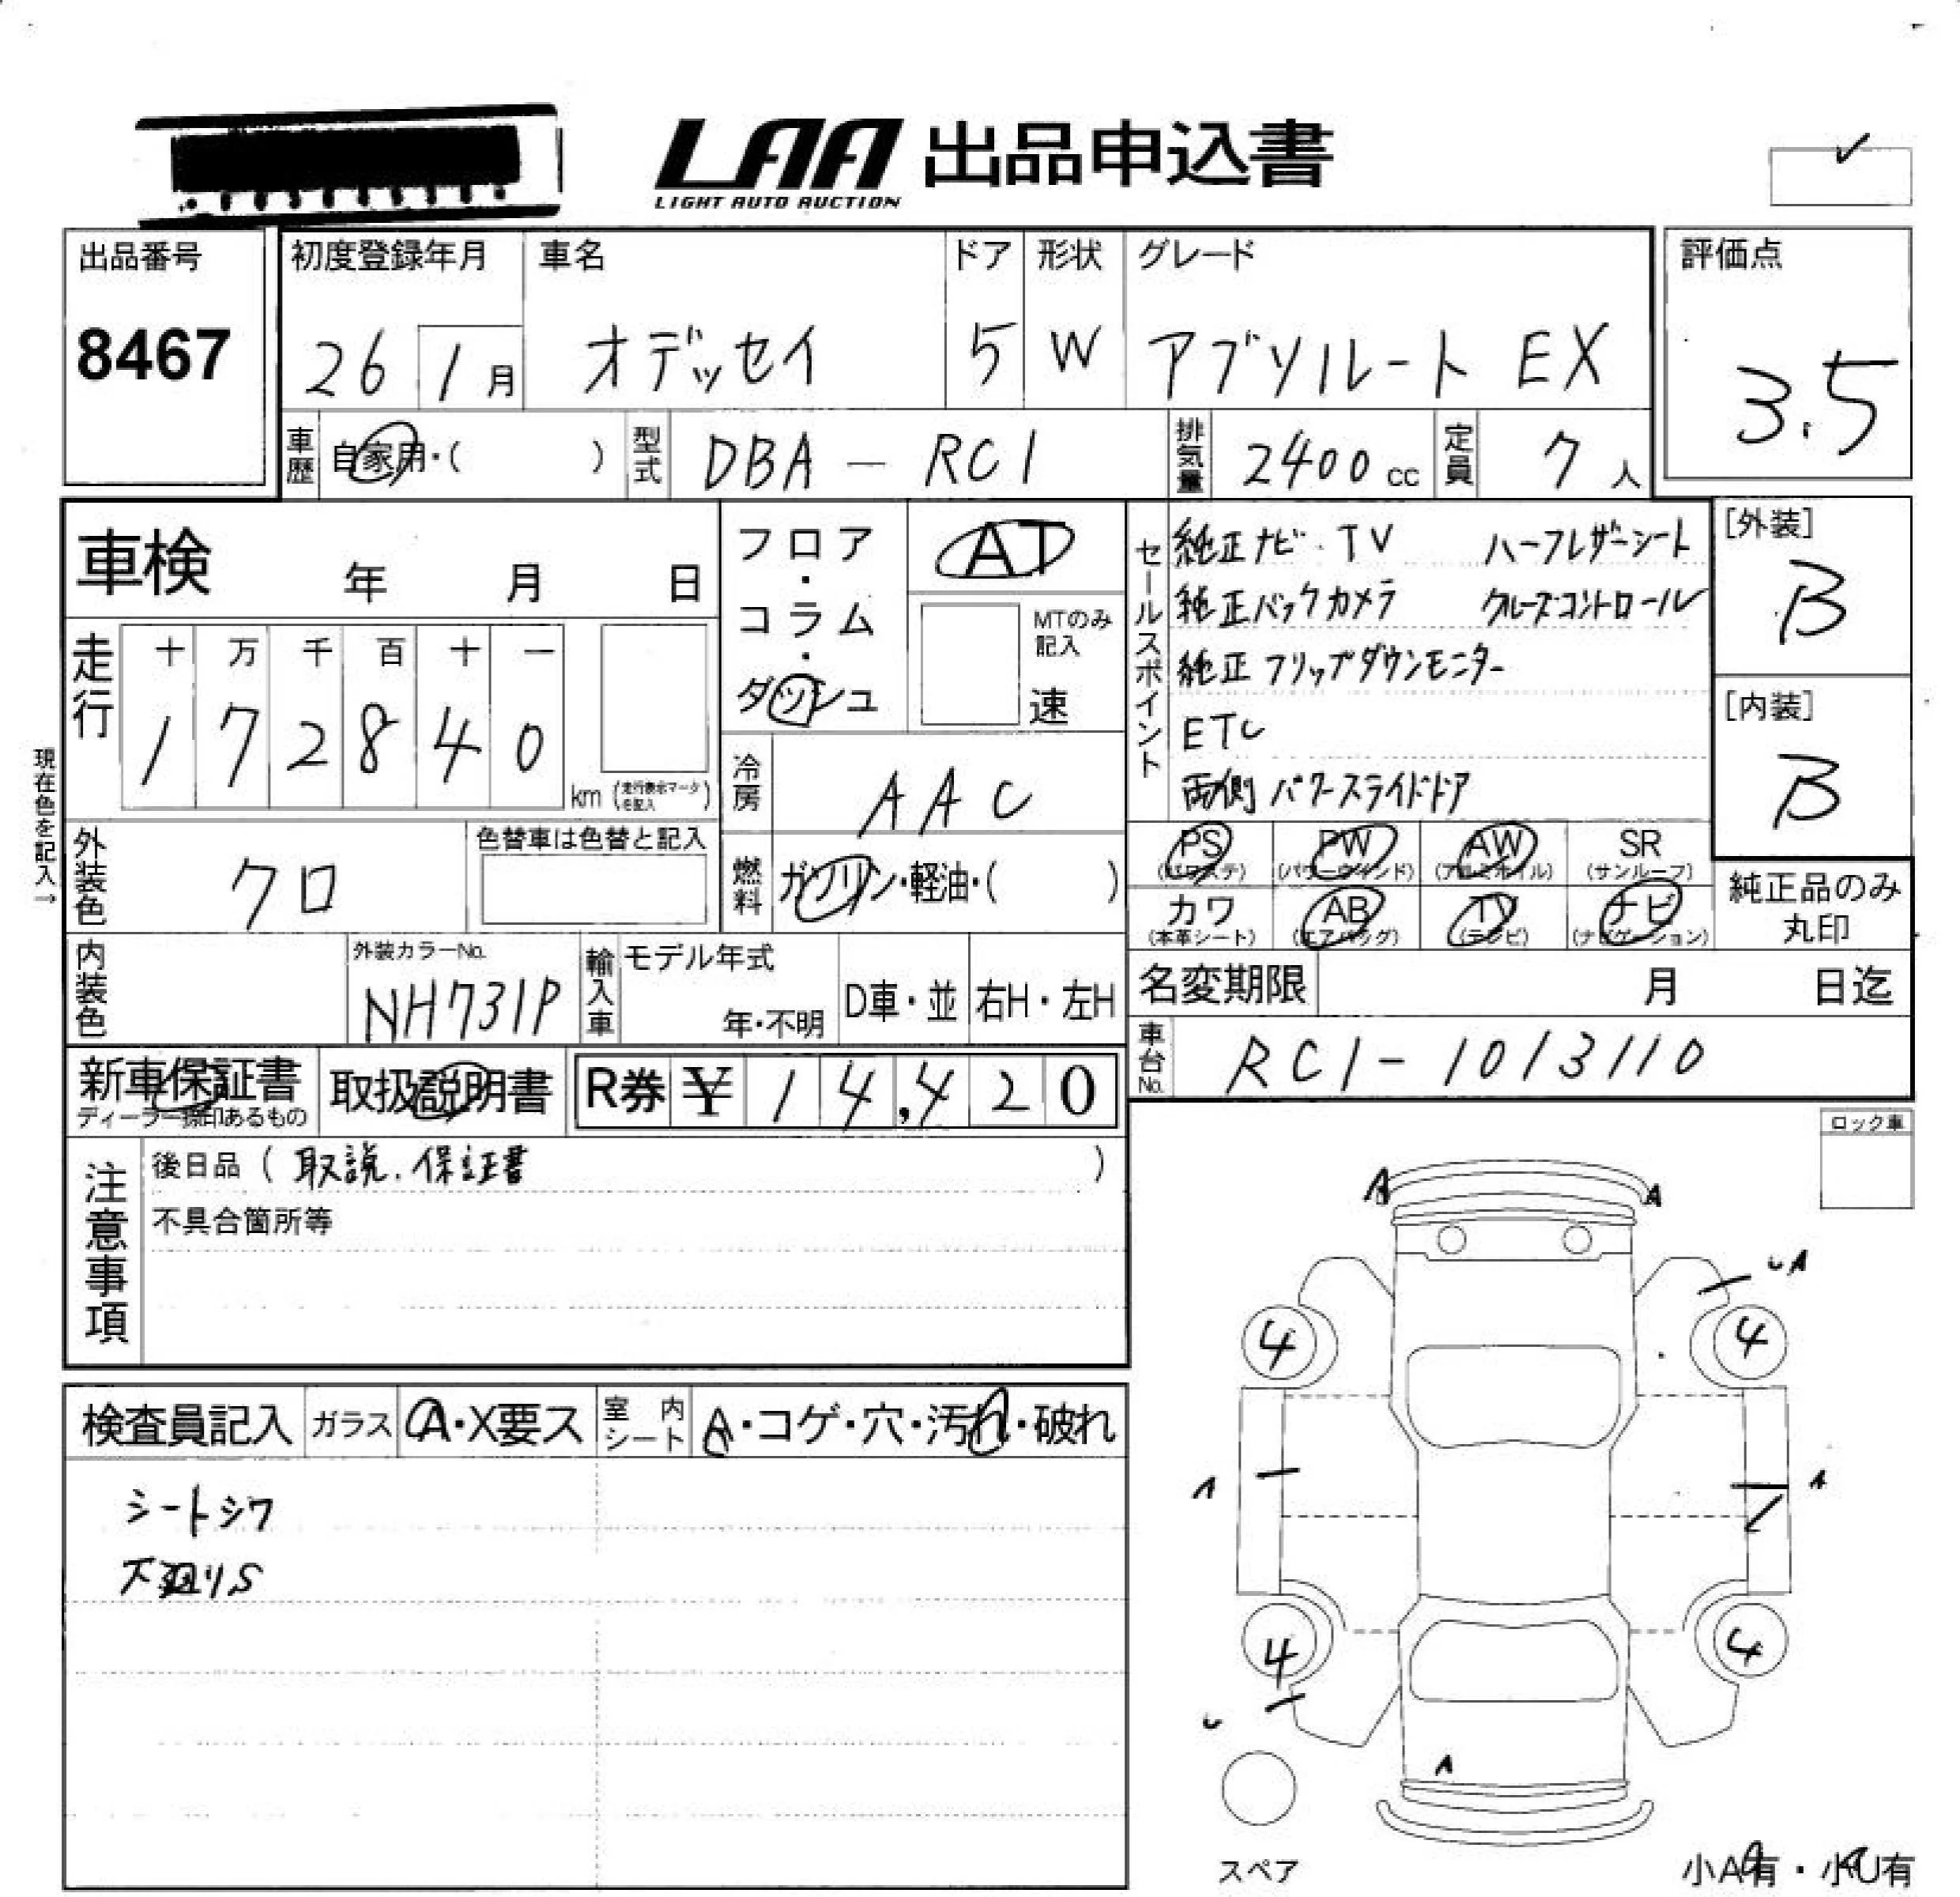 LAA 出品申込書
LIGHT AUTO AUCTION
出品番号
8467
初度登録年月
26 1月
車名
オデッセイ
ドア
5
形状
W
グレード
アブソルート EX
評価点
3.5
車歴 自家用・( )
型式 DBA-RC1
排気量 2400cc
定員 7人
車検 年 月 日
フロア・コラム・ダッシュ
AT
MTのみ記入
速
走行
十 万 千 百 十 一
1 7 2 8 4 0
km (走行表示マークを記入)
現在色を記入→
冷房 AAC
外装色 クロ
色替車は色替と記入
燃料 ガソリン・軽油・( )
内装色
外装カラーNo.
NH731P
輸入車
モデル年式
年・不明
D車・並
右H・左H
セールスポイント
純正ナビ.TV ハーフレザーシート
純正バックカメラ クルーズコントロール
純正フリップダウンモニター
ETC
両側パワースライドドア
[外装]
B
[内装]
B
PS (パワステ) PW (パワーウインド) AW (アルミホイル) SR (サンルーフ)
カワ (本革シート) AB (エアバッグ) TV (テレビ) ナビ (ナビゲーション)
純正品のみ丸印
名変期限 月 日迄
車台No. RC1-1013110
新車保証書
ディーラー捺印あるもの
取扱説明書
R券 ¥ 14,420
注意事項
後日品 ( 取説.保証書 )
不具合箇所等
検査員記入
ガラス A・X要ス
室内シート A・コゲ・穴・汚れ・破れ
シートシワ
下廻りS
ロック車
A A
UA
4 4
A A
4 4
U
A
スペア
小A有・小U有